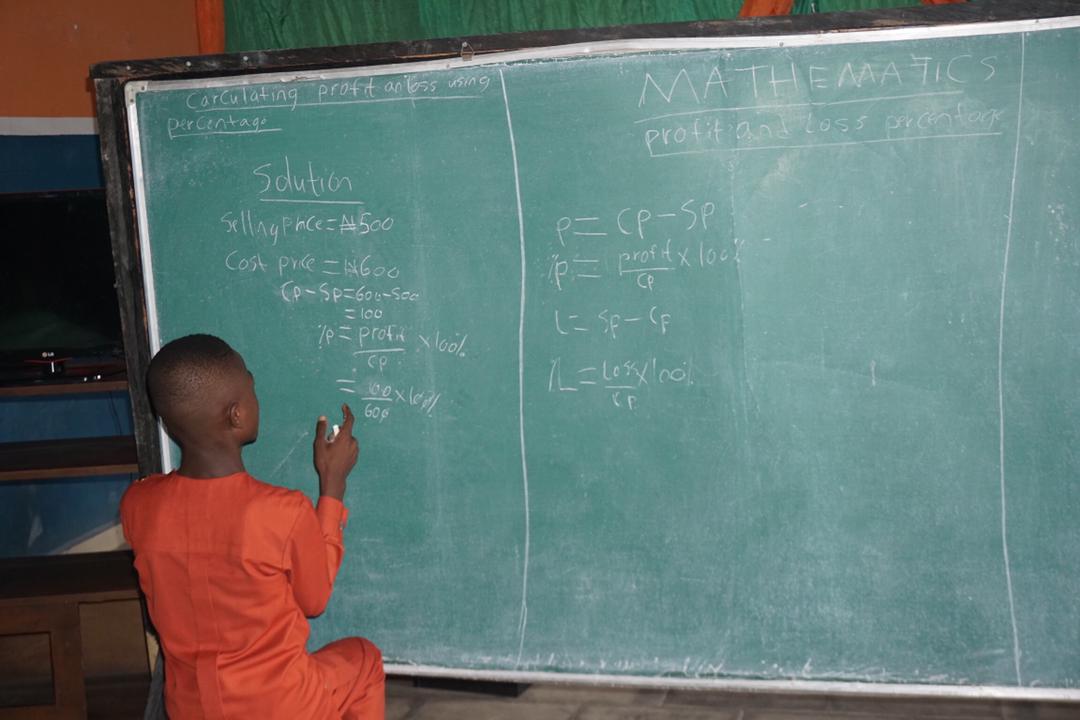 Carculating profit an loss using
percentage
Solution
Selling price = ₦500
Cost price = ₦600
Cp - Sp = 600 - 500
= 100
%p = profit/cp × 100%
= 100/600 × 100%
MATHEMATICS
profit and Loss percentage
p = Cp - Sp
%p = profit/cp × 100%
L = Sp - Cp
%L = Loss/cp × 100%